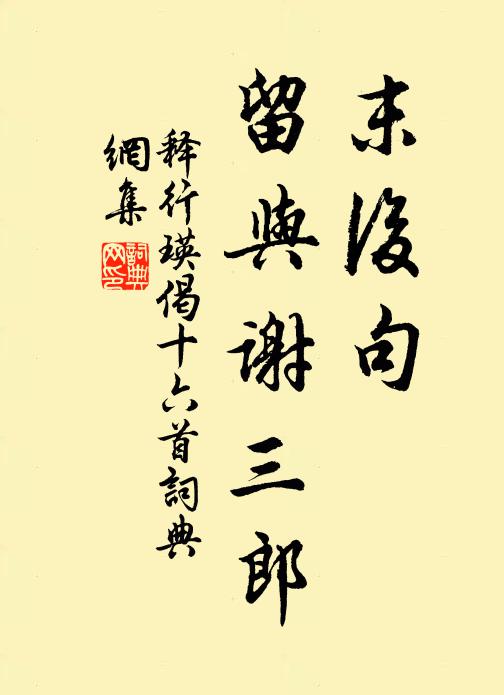 末後句
留與謝三郎
释行瑛偈十六首詞典
網集
詞典
网印